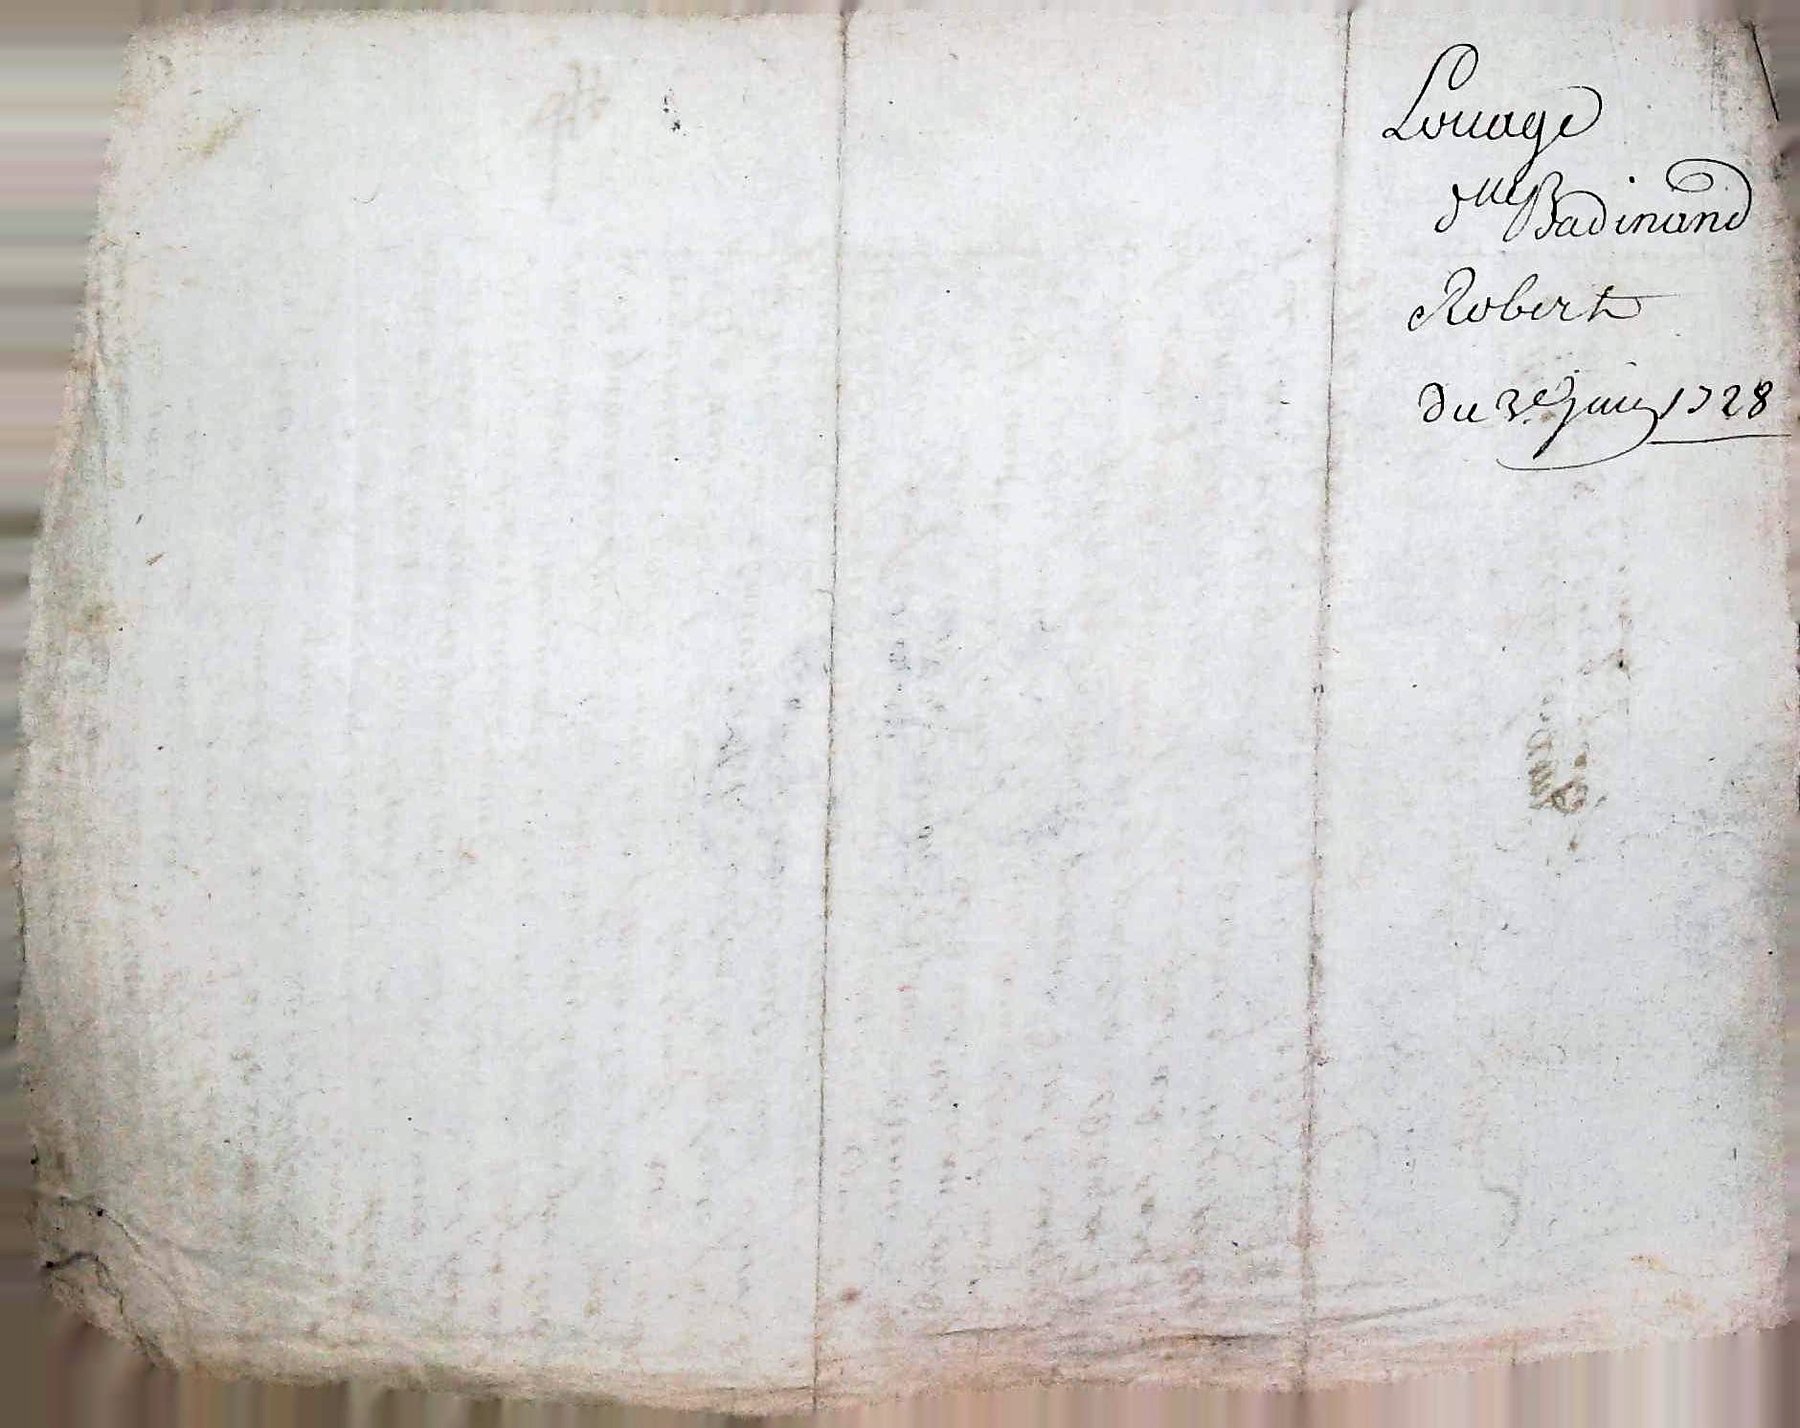 Louage
dlle Badinand
Robert
Du 3e juin 1728